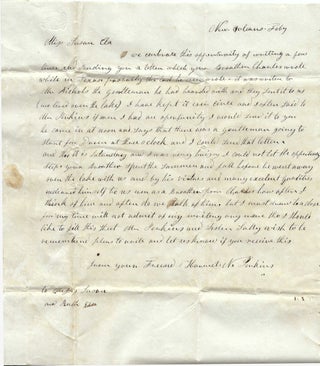 New Orleans Feby
Miss Susan Ela
I embrace this opportunity of writing a few
lines and sending you a letter which your Brother Charles wrote
while in Texas probably the last he ever wrote it was written to
Mr Nichols the gentleman he had boarded with and they sent it to us
over the lake) I have kept it ever since and often said to
Mr Perkins if ever I had an opportunity I would send it to you
he came in at noon and says that there was a gentleman going to
start for at three o'clock and I could send that letter
and tho it is Saturday and I was very busy I could not let the opportunity
slip your Brother spent the summer and fall before he went away
over the lake with us and by his virtues and many excelent qualities
endeared himself to us as a Brother from hour after I
think of him and often do we of him but I must draw to a close
for my time will not admit of my writing any more tho I should
like to fill this sheet Mr Perkins and sister Sally wish to be
remembered to you write and let us know if you receive this
from your Friend Hannah N Perkins
to Susan